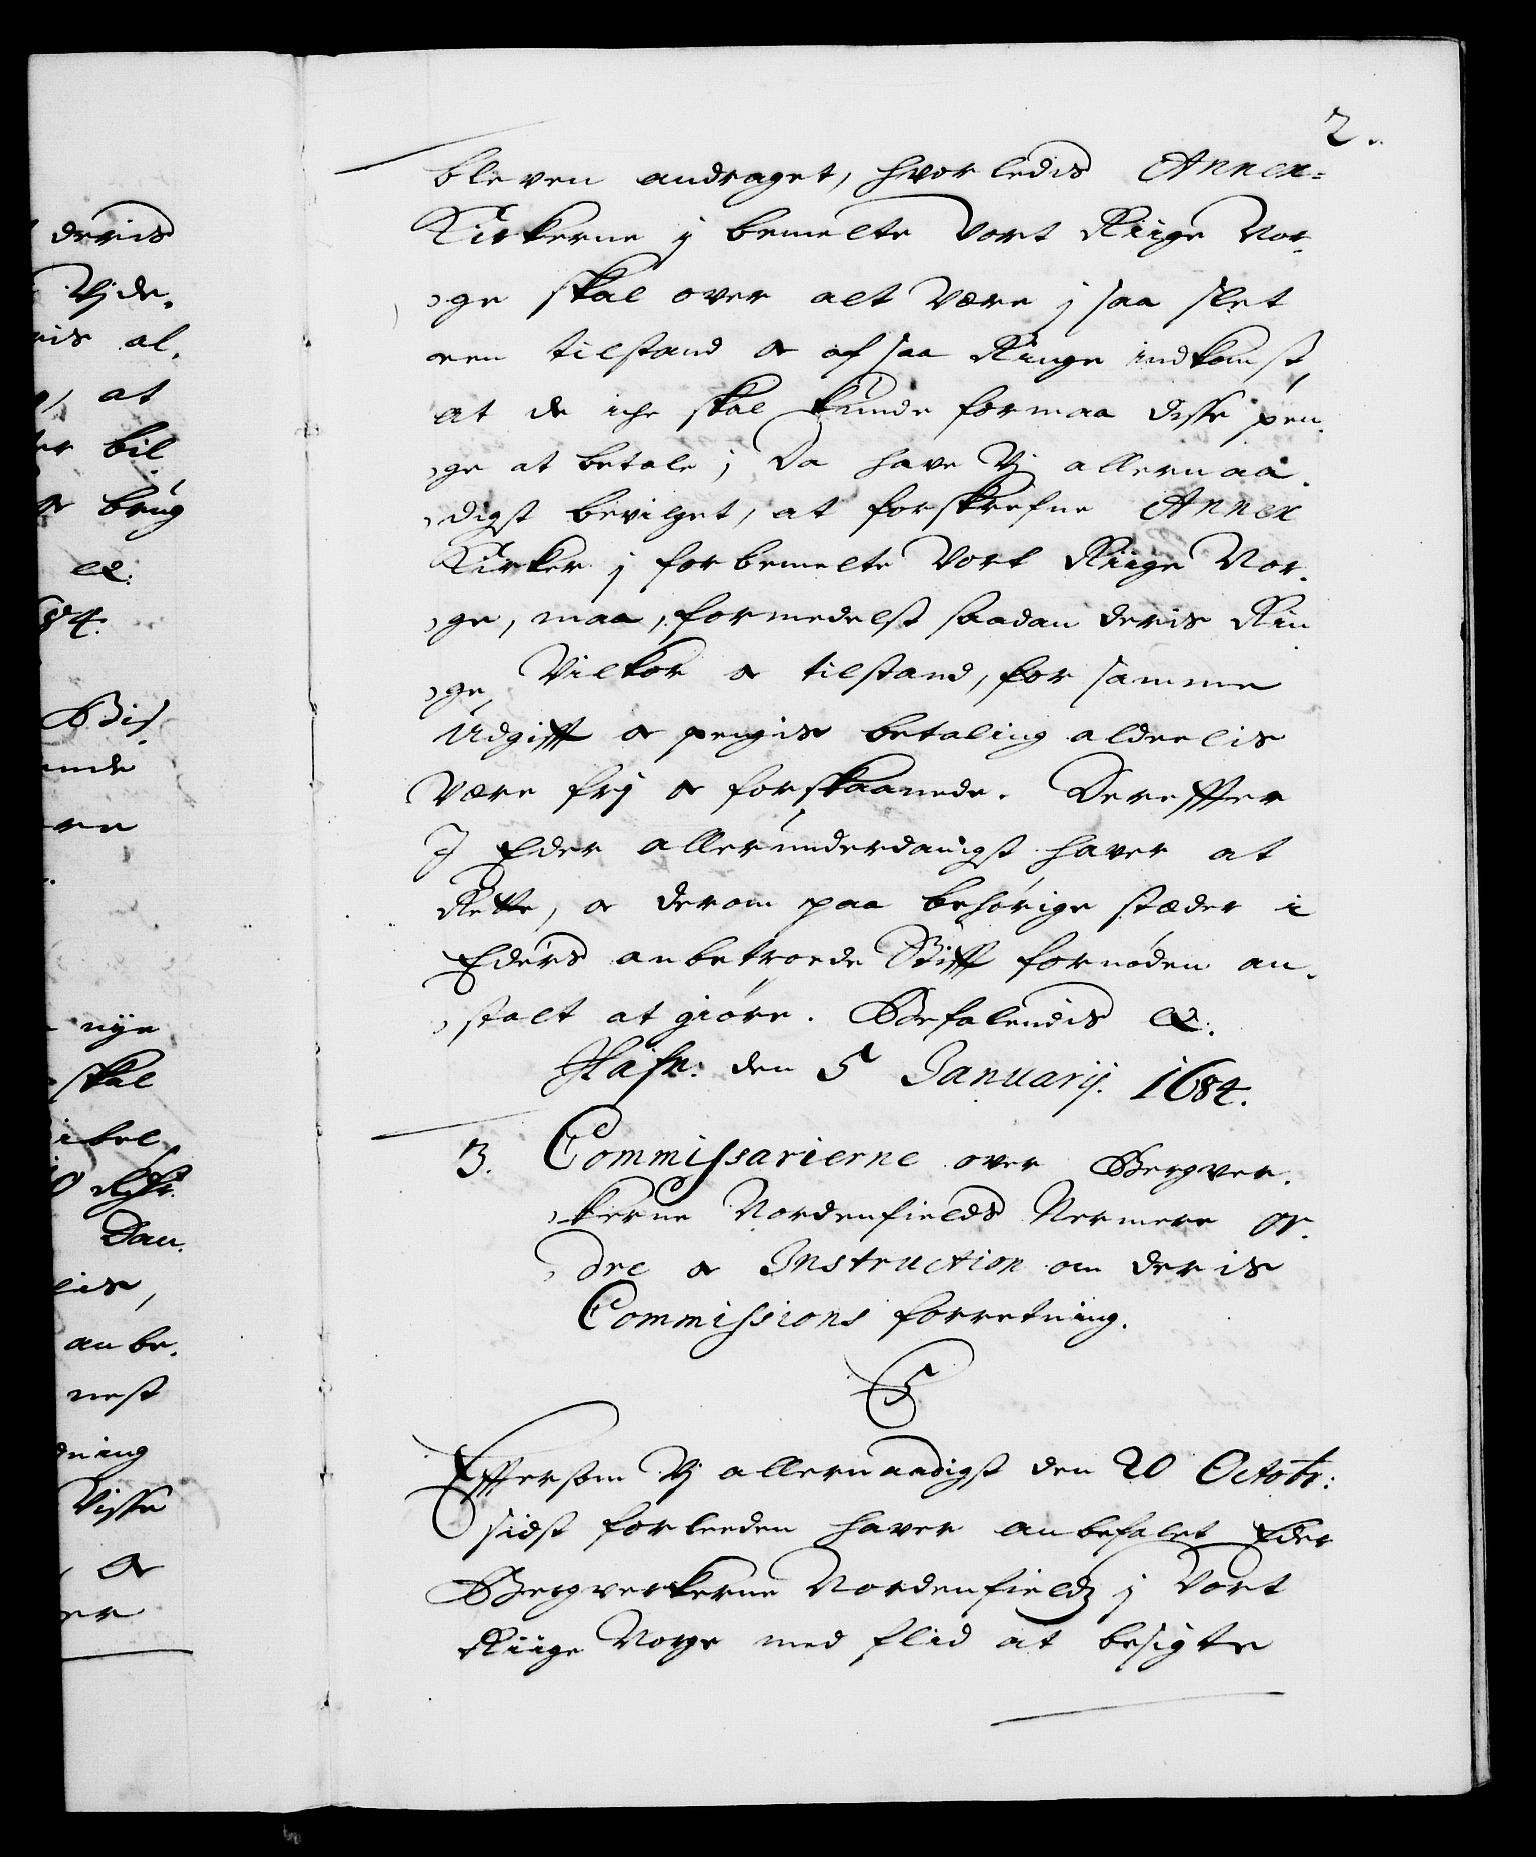 deris
Vj de.
ris al.
at
er bil
& brug
&c:
84.
Bis
nye
skal
ibel
Dan.
lis,
anbe.
nest
dning
Visse
&
er
2.
bleven andraget, hvorledis Annex=
Kirkerne j bemelte Vort Riige Nor.
ge skal over alt være j saa slet
een tilstand & af saa Ringe indkomst,
at de iche skal kunde formaa disse pen.
ge at betale; Da have Vj allernaa.
digst bevilget, at forskrefne Annex
Kirker j forbemelte Vort Riige Nor.
ge, maa, formedelst saadan deris Rin
ge Vilkor & tilstand, for samme
Udgifft & pengis betaling aldeelis
være frj & forskaanede. Derefter
J Eder allerunderdanigst haver at
Rette, & derom paa behörige stæder i
Eders anbetroede Stifft fornöden an.
stalt at giöre. Befalendis &c:
Hafn: den 5 Januarij. 1684.
3. Commissarierne over Bergver.
kerne Nordenfields Nermere or.
dre & Instruction om deris
Commissions forretning.
C5
Eftersom Vj allernaadigst den 20 Octobr:
sidst forleeden haver anbefalet Eder
Bergverkerne Nordenfields j Vort
Riige Norge med flid at besigte